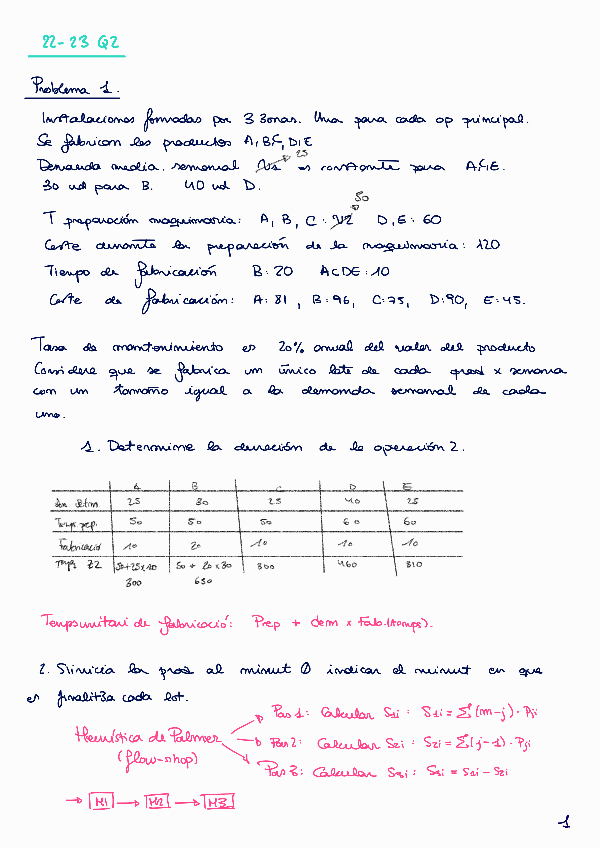 22-23 Q2
Problema 1.
Instalaciones formadas por 3 zonas. Una para cada op principal.
Se fabrican los productos A, B, C, D, E
Demanda media semanal es constante para A, C, E. 25
30 ud para B. 40 ud D.
T preparación maquinaria: A, B, C: 50 D, E: 60
Coste durante la preparación de la maquinaria: 120
Tiempo de fabricación B: 20 ACDE: 10
Coste de fabricación: A: 81, B: 96, C: 75, D: 90, E: 45.
Tasa de mantenimiento es 20% anual del valor del producto
Considere que se fabrica un único lote de cada prod x semana
con un tamaño igual a la demanda semanal de cada
uno.
1. Determine la duración de la operación 2.
A B C D E
dem 25 30 25 40 25
Temps prep. 50 50 50 60 60
Fabricació 10 20 10 10 10
Temps Z2 50+25x10 50 + 20x30 300 460 310
300 650
Temps unitari de fabricació: Prep + dem x Fab.(temps).
2. Si inicia la prod al minut 0 indicar el minut en que
es finalitza cada lot.
Heurística de Palmer
(flow-shop)
Pas 1: Calcular S1i: S1i = Σ(m-j)·Pji
Pas 2: Calcular S2i: S2i = Σ(j-1)·Pji
Pas 3: Calcular S3i: S3i = S1i - S2i
→ M1 → M2 → M3
1